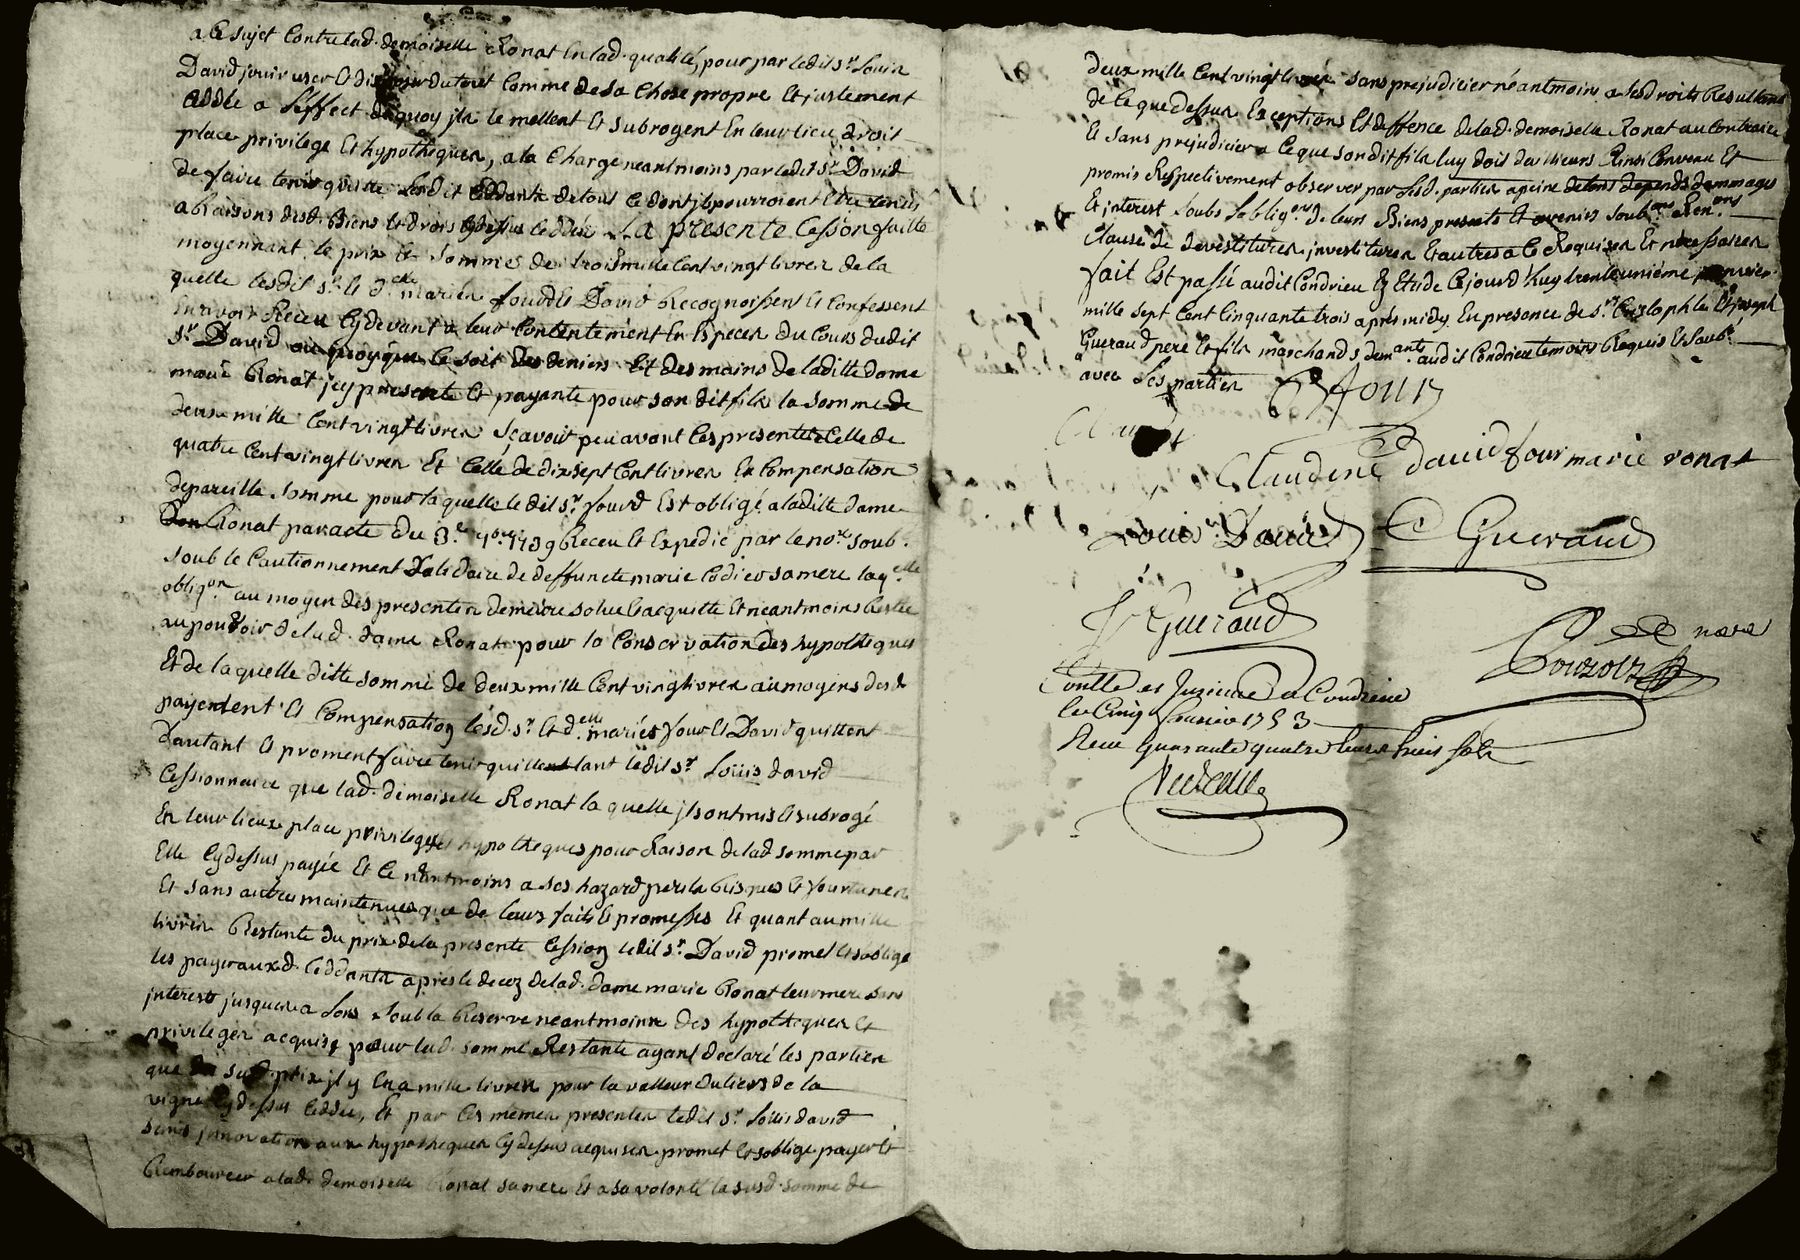 a ce sujet contre lad. demoiselle Ronat en lad. qualité, pour par ledit sr. Louis
David jouir user et disposer du tout comme de sa chose propre et justement
a l'effect dequoy jls le mettent et subrogent en leur lieu droit
place privilege et hypotheques, a la charge neantmoins par ledit sr. David
de faire tenir quitte lesdit ceddants de tout ce dont jls pourroient etre tenus
a Raisons desd. Biens et droits cydessus ceddés La presente cession faitte
moyennant le prix et sommes de trois mille cent vingt livres de la
quelle lesdit sr. et delle. mariés fourd et David Recognoissent et confessent
avoir Receu cydevant a leur contentement en especes du cours dudit
sr. David ou quoyque ce soit des deniers et des mains de laditte dame
marie Ronat jcy presente et payante pour son dit fils la somme de
deux mille cent vingt livres sçavoir peu avant ces presentes celle de
quatre cent vingt livres et celle de dix sept cent livres en compensation
depareille somme pour laquelle ledit sr. fourd est obligé a laditte dame
Ronat par acte du 3e 7bre 1739 Receu et expedié par le nore. soub.
soub le cautionnement solidaire de deffuncte marie Codier sa mere laqelle
obligon au moyen des presentes demeure solue et acquitte et neantmoins Restée
au pouvoir de lad. dame Ronat pour la conservation des hypotheques
et de laquelle ditte somme de deux mille cent vingt livres au moyens desd
payement et compensation lesd. sr. et delle. mariés four et David quittent
dautant et proment faire tenir quitte tant ledit sr. Loüis david
cessionnaire que lad. demoiselle Ronat laquelle jls ont mis et subrogé
en leur lieux place privileges et hypotheques pour Raison de lad somme par
elle cydessus payée et ce néantmoins a ses hazard perils Risques et fourtunes
et sans autres maintenues que de leurs faits et promesses et quant au mille
livres Restante du prix de la presente cession ledit sr. David promet et soblige
les payer auxd. ceddants apres le decez de lad. dame marie Ronat leur mere sans
jnterests jusques a lors soub la Reserve neantmoins des hypotheques et
privileges acquis pour lad. somme Restante ayant declaré les parties
que du susd. prix jl y en a mille livres pour la valleur du tiers de la
vigne cydessus ceddée, et par ces mêmes presentes ledit sr. Loüis david
sans jnnovation aux hypotheques cydessus acquises promet et soblige payer et
Rembourcer a lad. demoiselle Ronat sa mere et a sa volonté la susd. somme de
deux mille cent vingt livres sans prejudicier néantmoins a ses droits Resultans
de ce que dessus exceptions et deffence de lad. demoiselle Ronat au contraire
et sans prejudicier a ce que sondit fils luy doit dailleurs Ainsi convenu et
promis Respectivement observer par lesd. parties a peine de tous depends dommages
et interest soubs l'obligon. de leurs Biens presents et avenirs soubons. Renons.
clause de devestitures jnvestitures et autres a ce Requises et necessaires
fait et passé audit Condrieu en etude cejourd'huy trente unième janvier
mille sept cent cinquante trois après midy en presence de srs. Cristophle et joseph
Gueraud pere et fils marchands demants. audit Condrieu temoins Requis et soub.
avec les parties
Claudine david four marie ronat
Louis David C Gueraud
J Gueraud
nore
Conlle. et Jnsinué a Condrieu
le Cinq 1753
Receu Quarante quatre livres huit sols